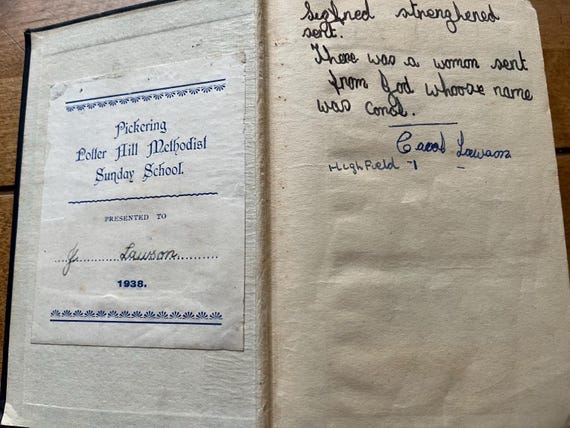 Pickering
Potter Hill Methodist
Sunday School.
PRESENTED TO
J. Lawson
1938.
Sigfried strenghened
sent.
There was a womon sent
from God whoose name
was carol.
Carol Lawson
HIGHField -7